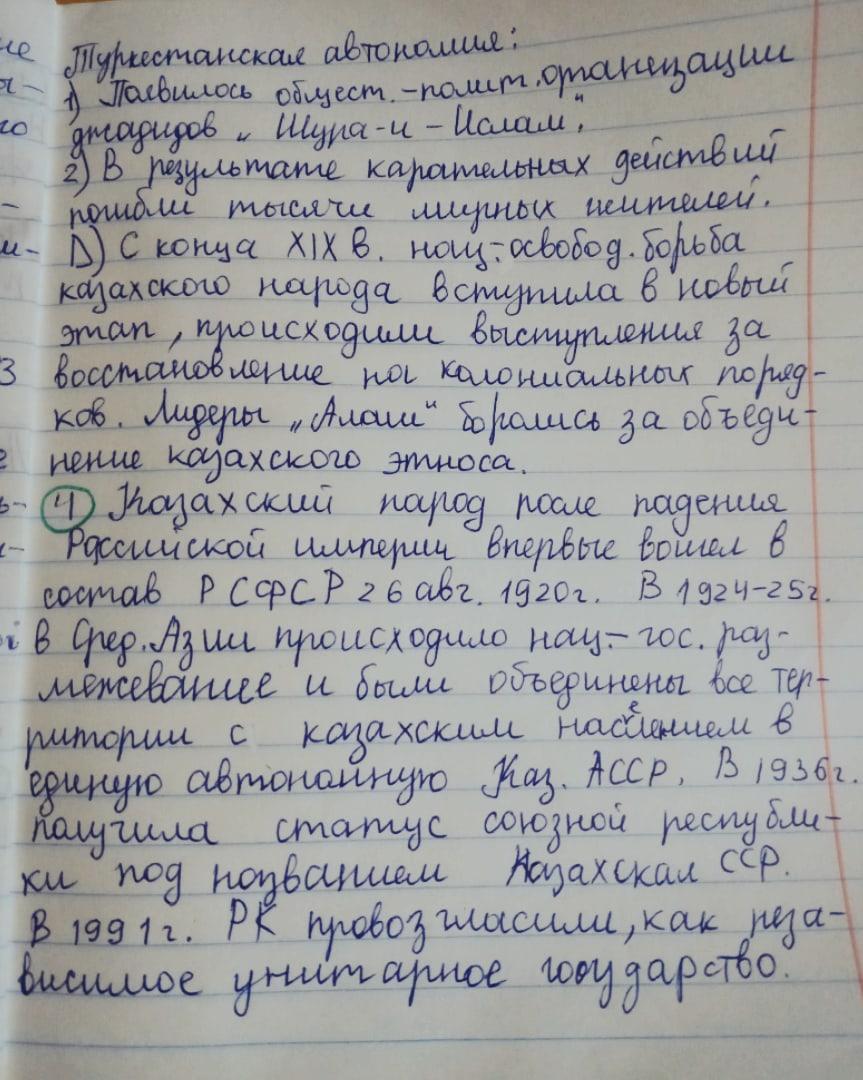 Туркестанская автономия:
1) Появилось общест.-полит. организации
джадидов „Шура-и-Ислам".
2) В результате карательных действий
погибли тысячи мирных жителей.
D) С конца XIX в. нац.-освобод. борьба
казахского народа вступила в новый
этап, происходили выступления за
восстановление на колониальных поряд-
ков. Лидеры „Алаш" боролись за объеди-
нение казахского этноса.
4 Казахский народ после падения
Российской империи впервые вошел в
состав РСФСР 26 авг. 1920г. В 1924-25г.
в Сред. Азии происходило нац.-гос. раз-
межевание и были объединены все тер-
ритории с казахским населением в
единую автономную Каз. АССР. В 1936г.
получила статус союзной республи-
ки под названием Казахская ССР.
В 1991г. РК провозгласили, как неза-
висимое унитарное государство.